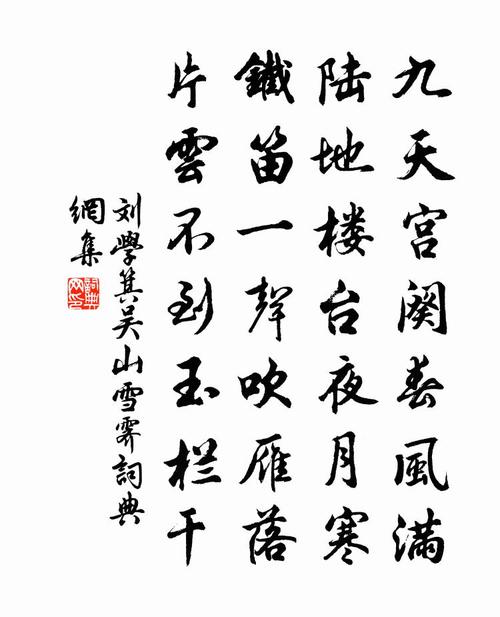 九天宫阙春風滿
陆地楼台夜月寒
鐵笛一聲吹雁落
片雲不到玉栏干
刘學箕吴山雪霽詞典
網集
詞典網印